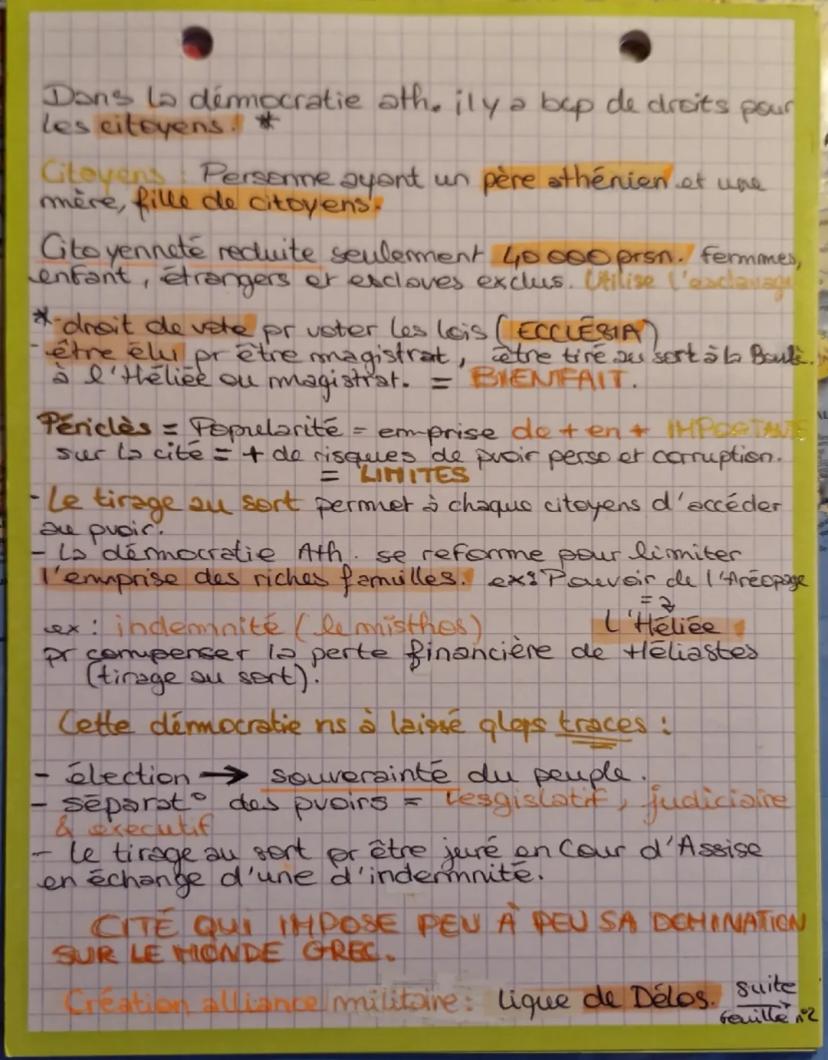 Dans la démocratie ath. il y a bcp de droits pour
les citoyens. *
Citoyens : Personne ayant un père athénien et une
mère, fille de citoyens.
Citoyenneté reduite seulement 40 000 prsn. femmes,
enfant, étrangers et esclaves exclus. Utilise l'esclavage
* -droit de vote pr voter les lois (ECCLÉSIA)
-être élu pr être magistrat, être tiré au sort à la Boulè.
à l'Héliée ou magistrat. = BIENFAIT.
Périclès = Popularité = emprise de + en + IMPORTANTE
sur la cité = + de risques de pvoir perso et corruption.
= LIMITES
- Le tirage au sort permet à chaque citoyens d'accéder
au pvoir.
- La démocratie Ath. se reforme pour limiter
l'emprise des riches familles. ex: Pouvoir de l'Aréopage
=>
L'Héliée
ex : indemnité (le misthos)
pr compenser la perte financière de Héliastes
(tirage au sort).
Cette démocratie ns à laissé qlqs traces :
- élection → souverainté du peuple.
- séparat° des pvoirs = lesgislatif, judiciaire
& executif
- le tirage au sort pr être juré en Cour d'Assise
en échange d'une d'indemnité.
CITÉ QUI IMPOSE PEU À PEU SA DOMINATION
SUR LE MONDE GREC.
Création alliance militaire : ligue de Délos. suite
feuille n°2